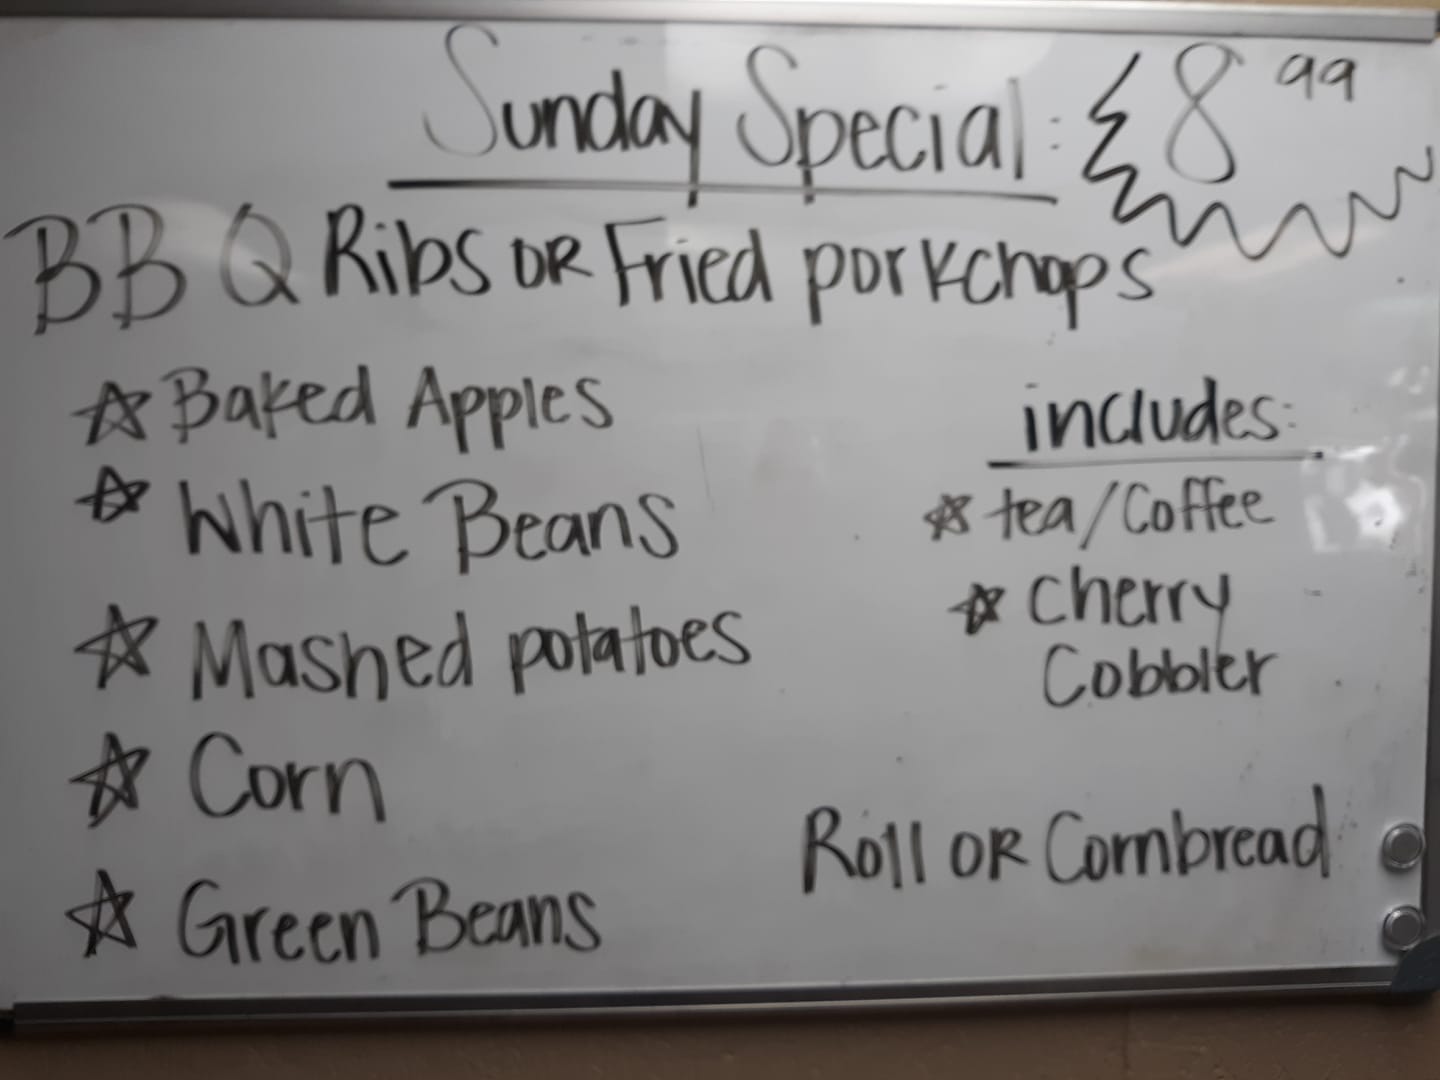 Sunday Special: 8 99
BBQ Ribs OR Fried porkchops
Baked Apples
White Beans
Mashed potatoes
Corn
Green Beans
includes:
tea/Coffee
Cherry
Cobbler
Roll OR Cornbread